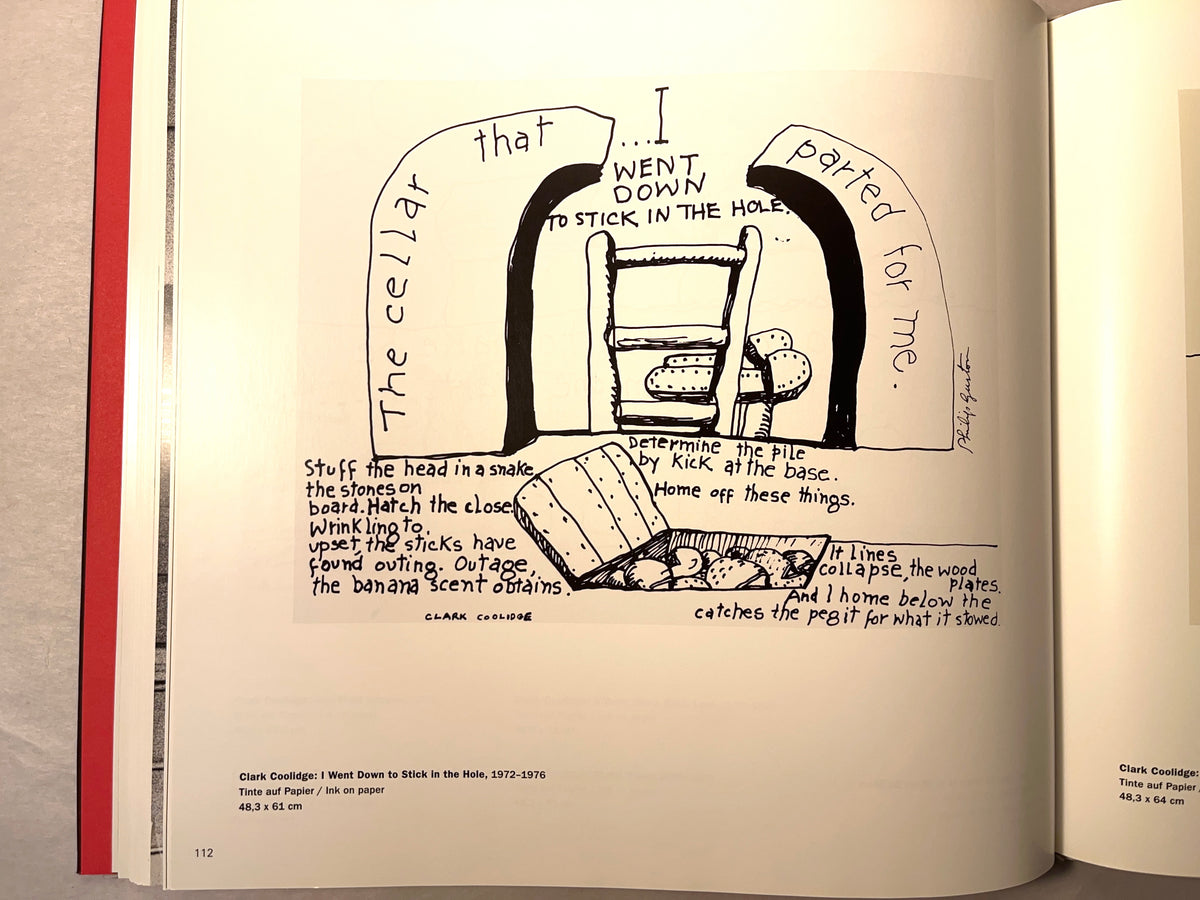 The cellar that
...I
WENT
DOWN
TO STICK IN THE HOLE.
parted for me.
Philip Guston
Stuff the head in a snake,
the stones on
board. Hatch the close.
Wrinkling to
upset, the sticks have
found outing. Outage,
the banana scent obtains.
Determine the pile
by kick at the base.
Home off these things.
It lines
collapse, the wood
plates.
And I home below the
catches the peg it for what it stowed.
CLARK COOLIDGE
Clark Coolidge: I Went Down to Stick in the Hole, 1972–1976
Tinte auf Papier / Ink on paper
48,3 x 61 cm
112
Clark Coolidge:
Tinte auf Papier /
48,3 x 64 cm